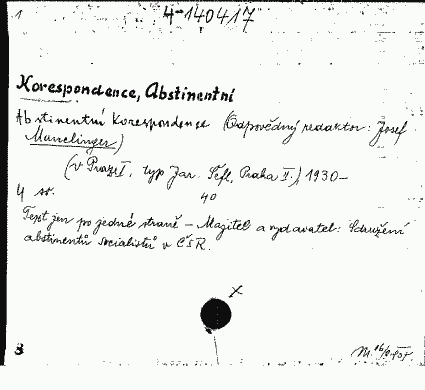 1
4-140417
Korespondence, Abstinentní
Abstinentní Korespondence (Odpovědný redaktor: Josef
Munclinger)
(V Praze I, typ Jar. Šefl, Praha II.), 1930—
4 sv. 40
Text jen po jedné straně — Majitel a vydavatel: Sdružení
abstinentů socialistů v ČSR.
x
3 M.